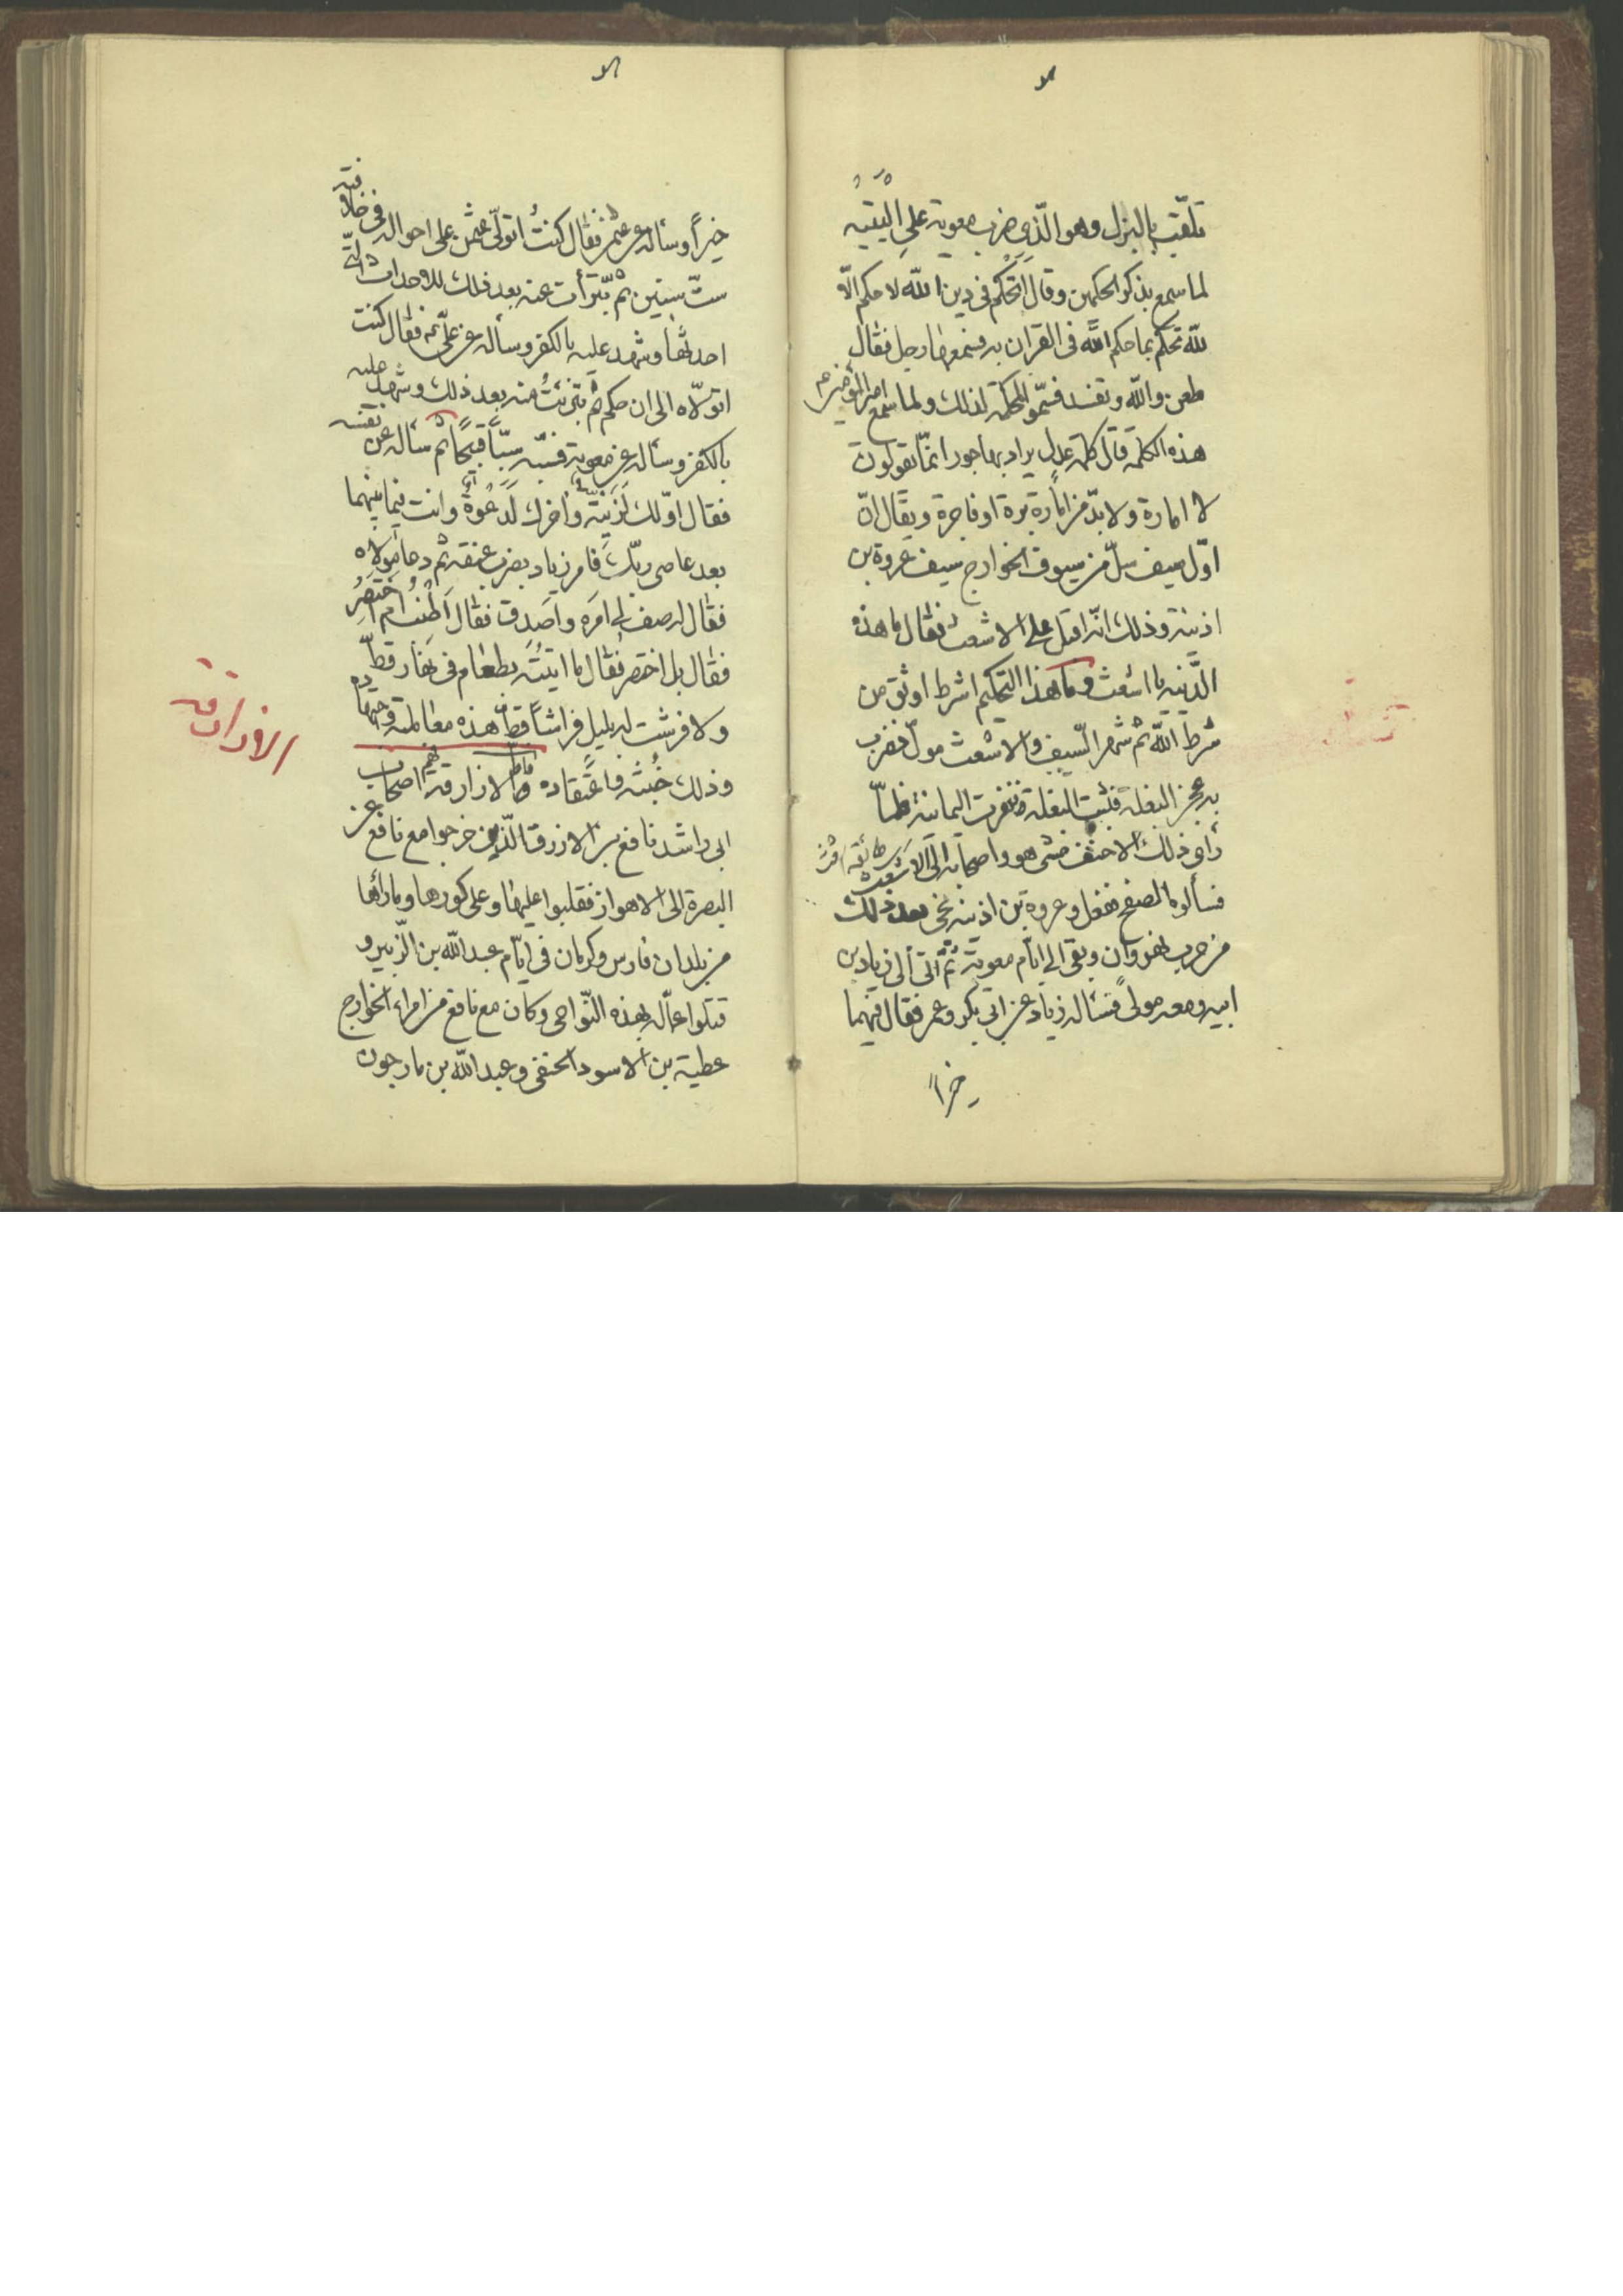 تلقّب بالبرك وهو الّذى ضرب معوية على اليتيه
لما سمع بذكر الحكمين وقال اتحكم فى دين الله لا حكم الّا
لله تحكم بما حكم الله فى القران به فسمعها رجل فقال
طعن والله ونفذ فسمّوا المحكمة لذلك ولما سمع امير المؤمنين ع م
هذه الكلمة قال كلمة عدل يراد بها جور انمّا يقولون
لا امارة ولا بدّ من امارة برة او فاجرة ويقال انّ
اوّل سيف سلّ من سيوف الخوارج سيف عروة بن
اذينة وذلك انّه اقبل على الاشعث فقال ما هذه
الدّنية يا اشعث وما هذا التحكيم اشرط اوثق من
شرط الله ثم شهر السّيف والاشعث مولّ فضرب
به عجز البغلة فشبت البغلة فنفرت اليمانية فلمّا
رأى ذلك الاحنف مشى هو واصحابه الى الاشعث
فسألوه الصفح ففعل وعروة بن اذينة نجى بعد ذلك
من حرب نهروان وبقى الى ايّام معوية ثمّ اتى الى زياد بن
ابيه ومعه مولى فسأله زياد عن ابى بكر وعمر فقال فيهما
خيراً
خيراً وسأله عن عثمن فقال كنت اتولّى عثمن على احواله فى خلافته
ستّ سنين ثم تبّرأت عنه بعد ذلك للاحداث الّتى
احدثها وشهد عليه بالكفر وسأله عن علّى ع م فقال كنت
اتولّاه الى ان حكم ثم تبرّئت منه بعد ذلك وشهد عليه
بالكفر وسأله عن معوية فسبّه سبّاً قبيحاً ثم سأله عن نفسه
فقال اوّلك لزنية واخرك لدعوة وانت فيما بينهما
بعد عاصى ربّك فامر زياد بضرب عنقه ثم دعا مولاه
فقال له صف لى امره واصدق فقال اطنب ام اختصر
فقال بل اختصر فقال ما اتيته بطعام فى نهار قطّ
ولا فرشت له بليل فراشاً قطّ هذه معاملته واجتهاده
وذلك خبثه واعتقاده واما الازارقة فهم اصحاب
ابى راشد نافع بن الازرق الّذين خرجوا مع نافع عن
البصرة الى الاهواز فغلبوا عليها وعلى كورها وما ورائها
من بلدان فارس وكرمان فى ايّام عبد الله بن الزّبير و
قتلوا عمّاله بهذه النّواحى وكان مع نافع من امراء الخوارج
عطية بن الاسود الحنفى وعبد الله بن ماحون
الازارقة